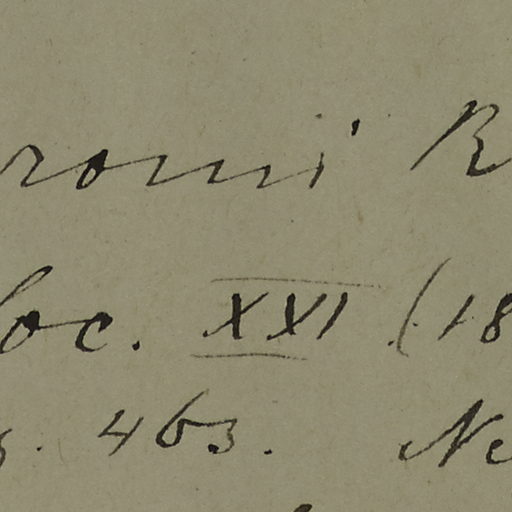 romii R
oc. XXI (18
. 463. Ne